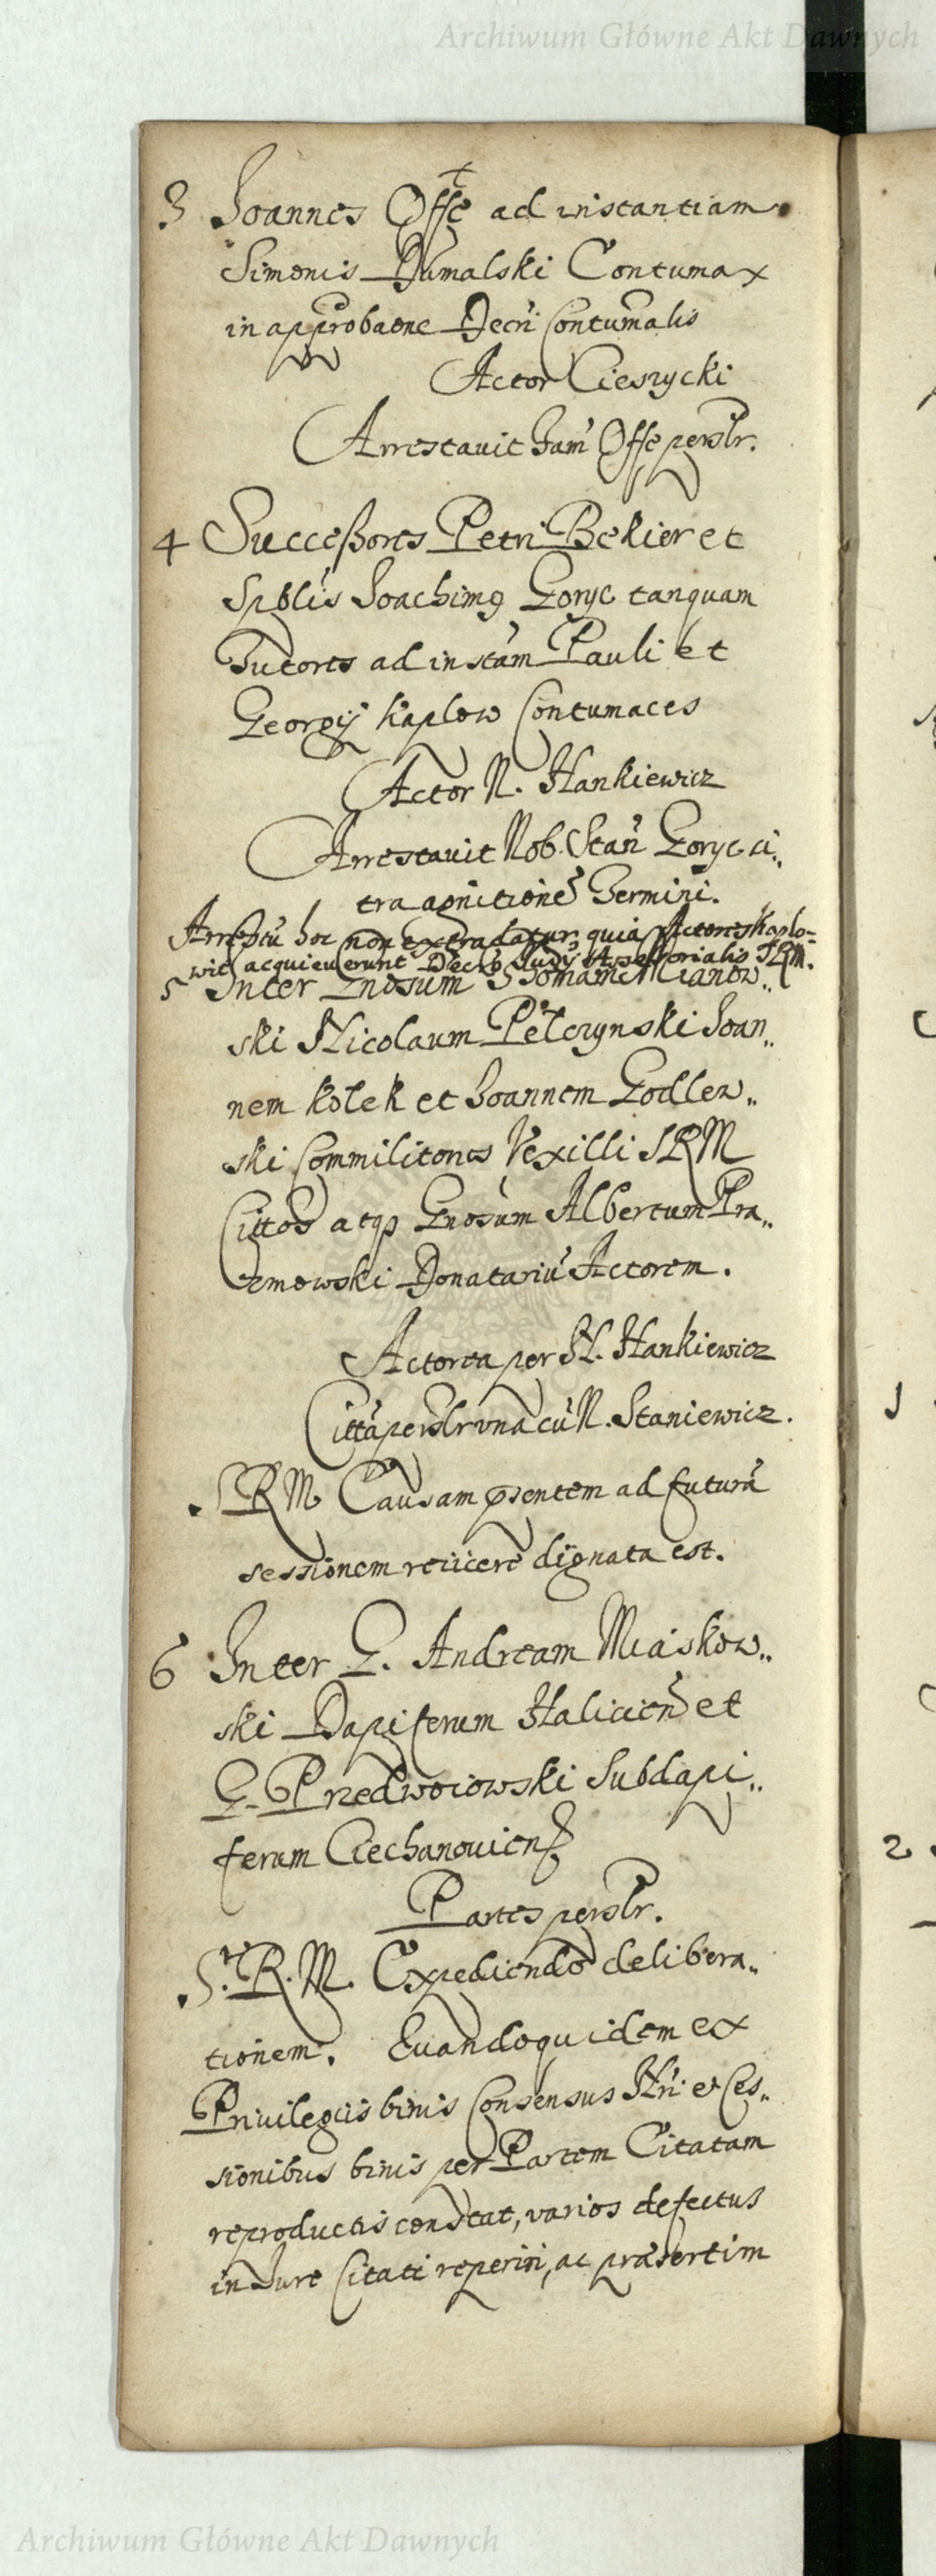 Archiwum Główne Akt Dawnych
3 Joannes Offe ad instantiam
Simonis Dumalski Contumax
in approbaone Decri Contumalis
Actor Cieszycki
Arrestavit Jam Offe persolr.
4 Successores Petri Bekier et
Spblis Joachimg Goryc tanquam
Tutores ad instam Pauli et
Georgij Kaplow Contumaces
Actor N. Hankiewicz
Arrestavit Nob. Stan Goryc ci„
tra agnitione Termini.
Arrestu hoc non extradatur, quia Actores Kaplo=
wic acquieverunt Decto Judij Assessorialis SRM.
5 Inter Gnosum Thomam Mianow„
ski Nicolaum Pelczynski Joan„
nem Kolek et Joannem Godlew„
ski Commilitones Vexilli SRM
Cittos atqp Gnosum Albertum Pra„
zmowski Donatariu Actorem.
Actorea per N. Hankiewicz
Citta persolr una cu N. Staniewicz.
SRM Causam psentem ad futura
sessionem reiicere dignata est.
6 Inter G. Andream Miaskow„
ski Dapiferum Halicien et
G. Przedwoiowski Subdapi„
ferum Ciechanouien
Partes persolr.
S. R. M. Expediendo delibera„
tionem. Quandoquidem ex
Privilegiis binis Consensus Nri et Ces„
sionibus binis per Partem Citatam
reproductis constat, varios defectus
in Jure Citati reperiri, ac præsertim
1
2
Archiwum Główne Akt Dawnych